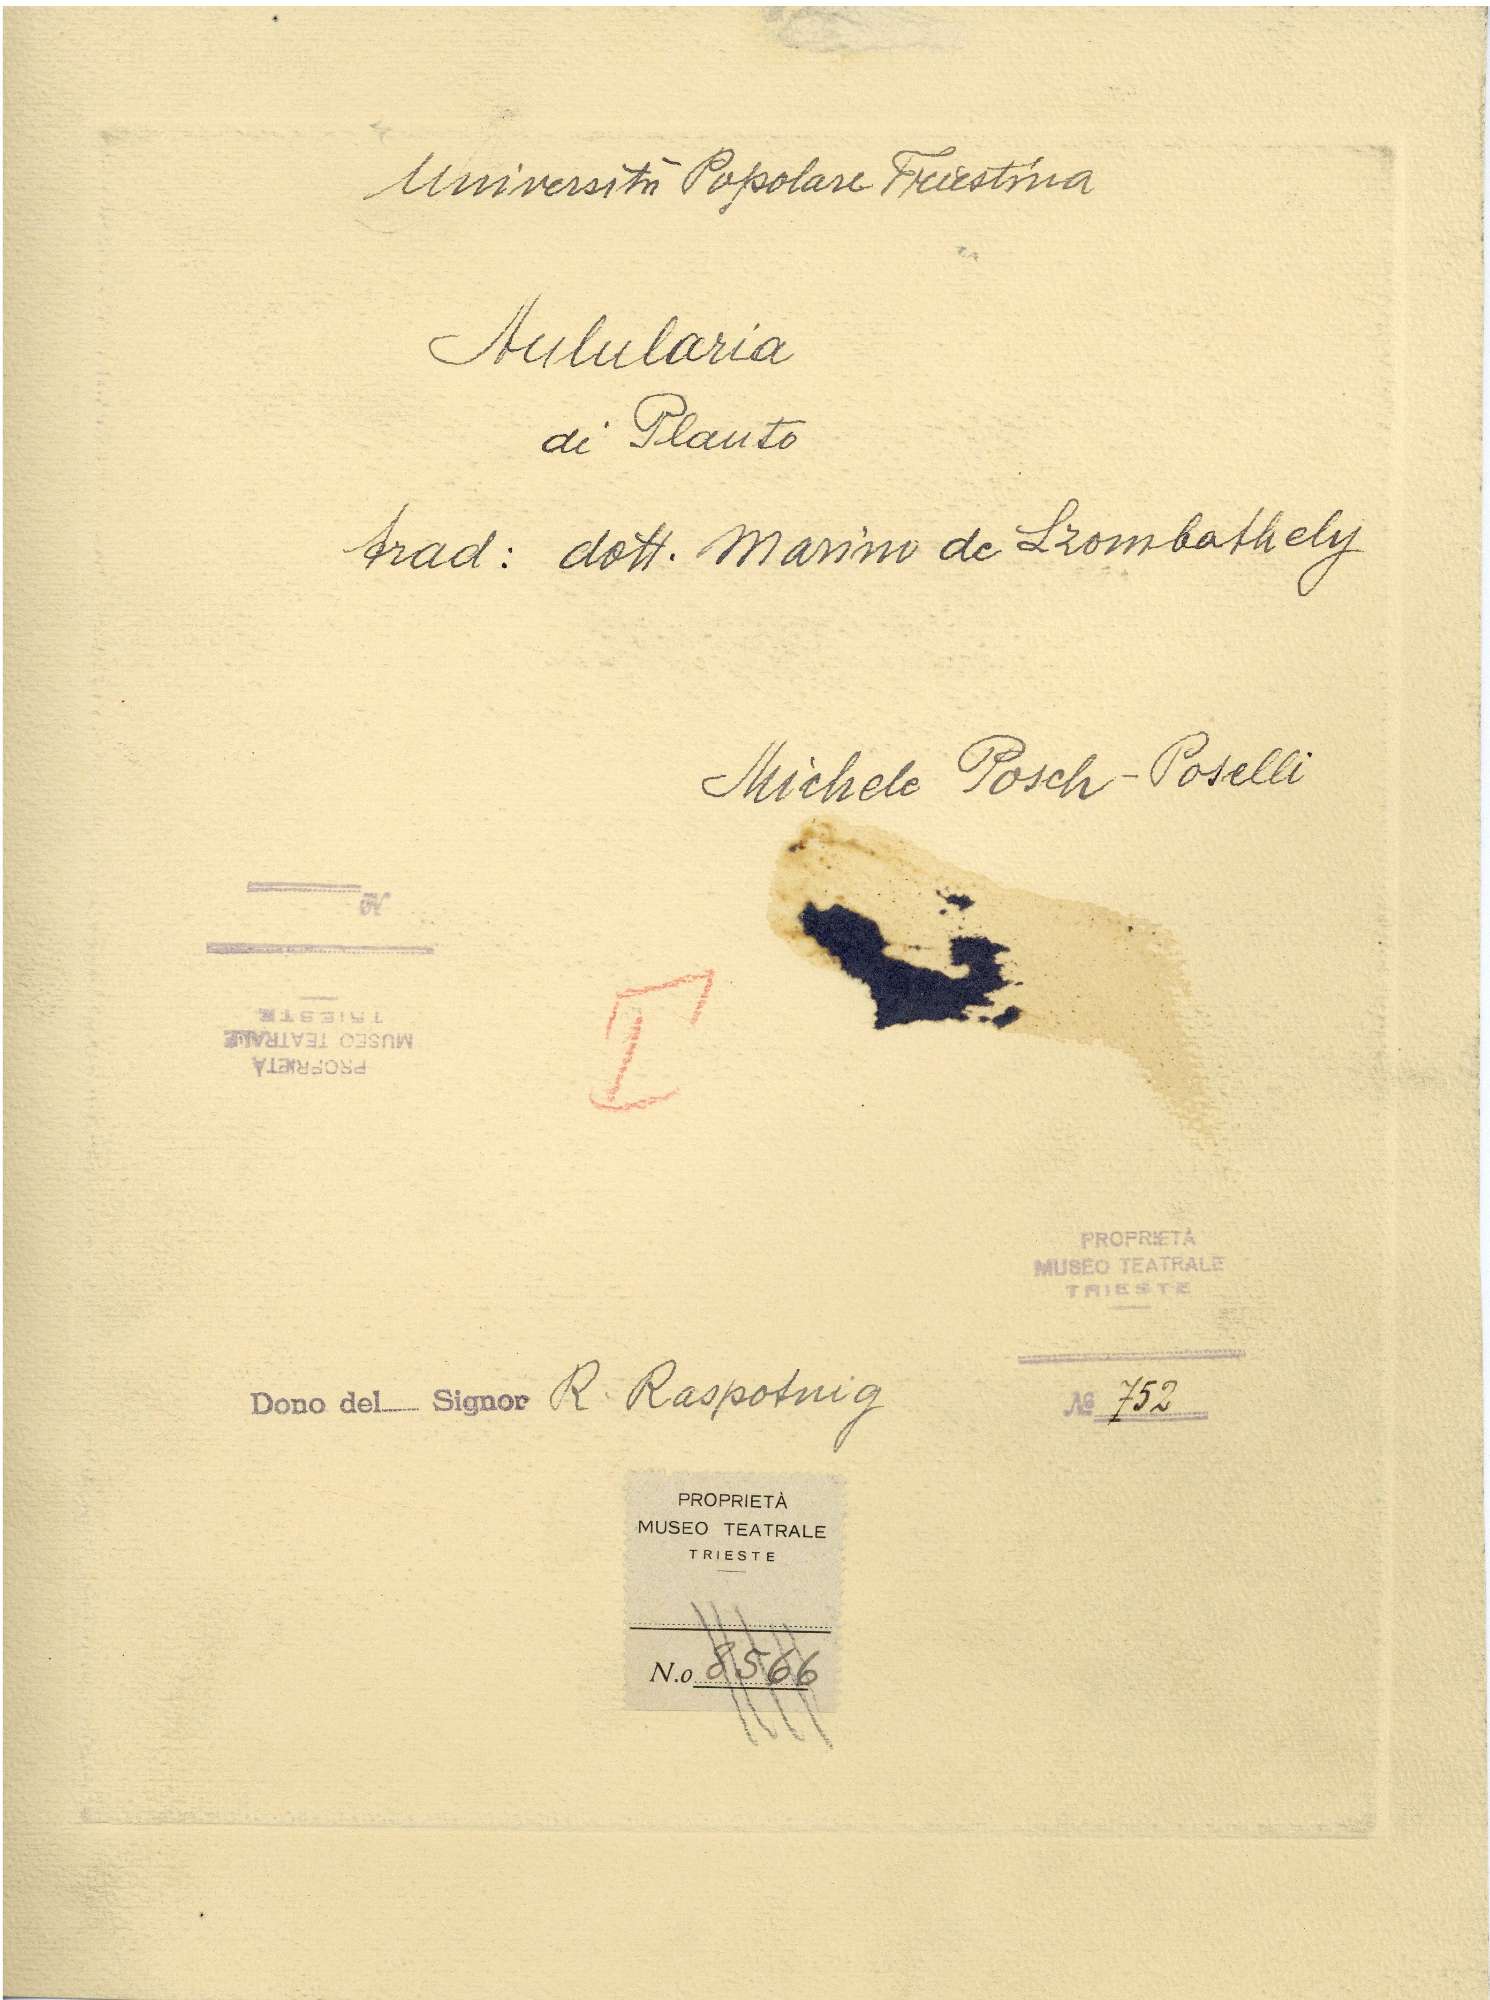 Università Popolare Triestina
Aulularia
di Plauto
trad: dott. Marino de Szombathely
Michele Posch-Poselli
No
PROPRIETÀ
MUSEO TEATRALE
TRIESTE
I
PROPRIETÀ
MUSEO TEATRALE
TRIESTE
Dono del Signor R. Raspotnig
No 752
PROPRIETÀ
MUSEO TEATRALE
TRIESTE
N.o 8566